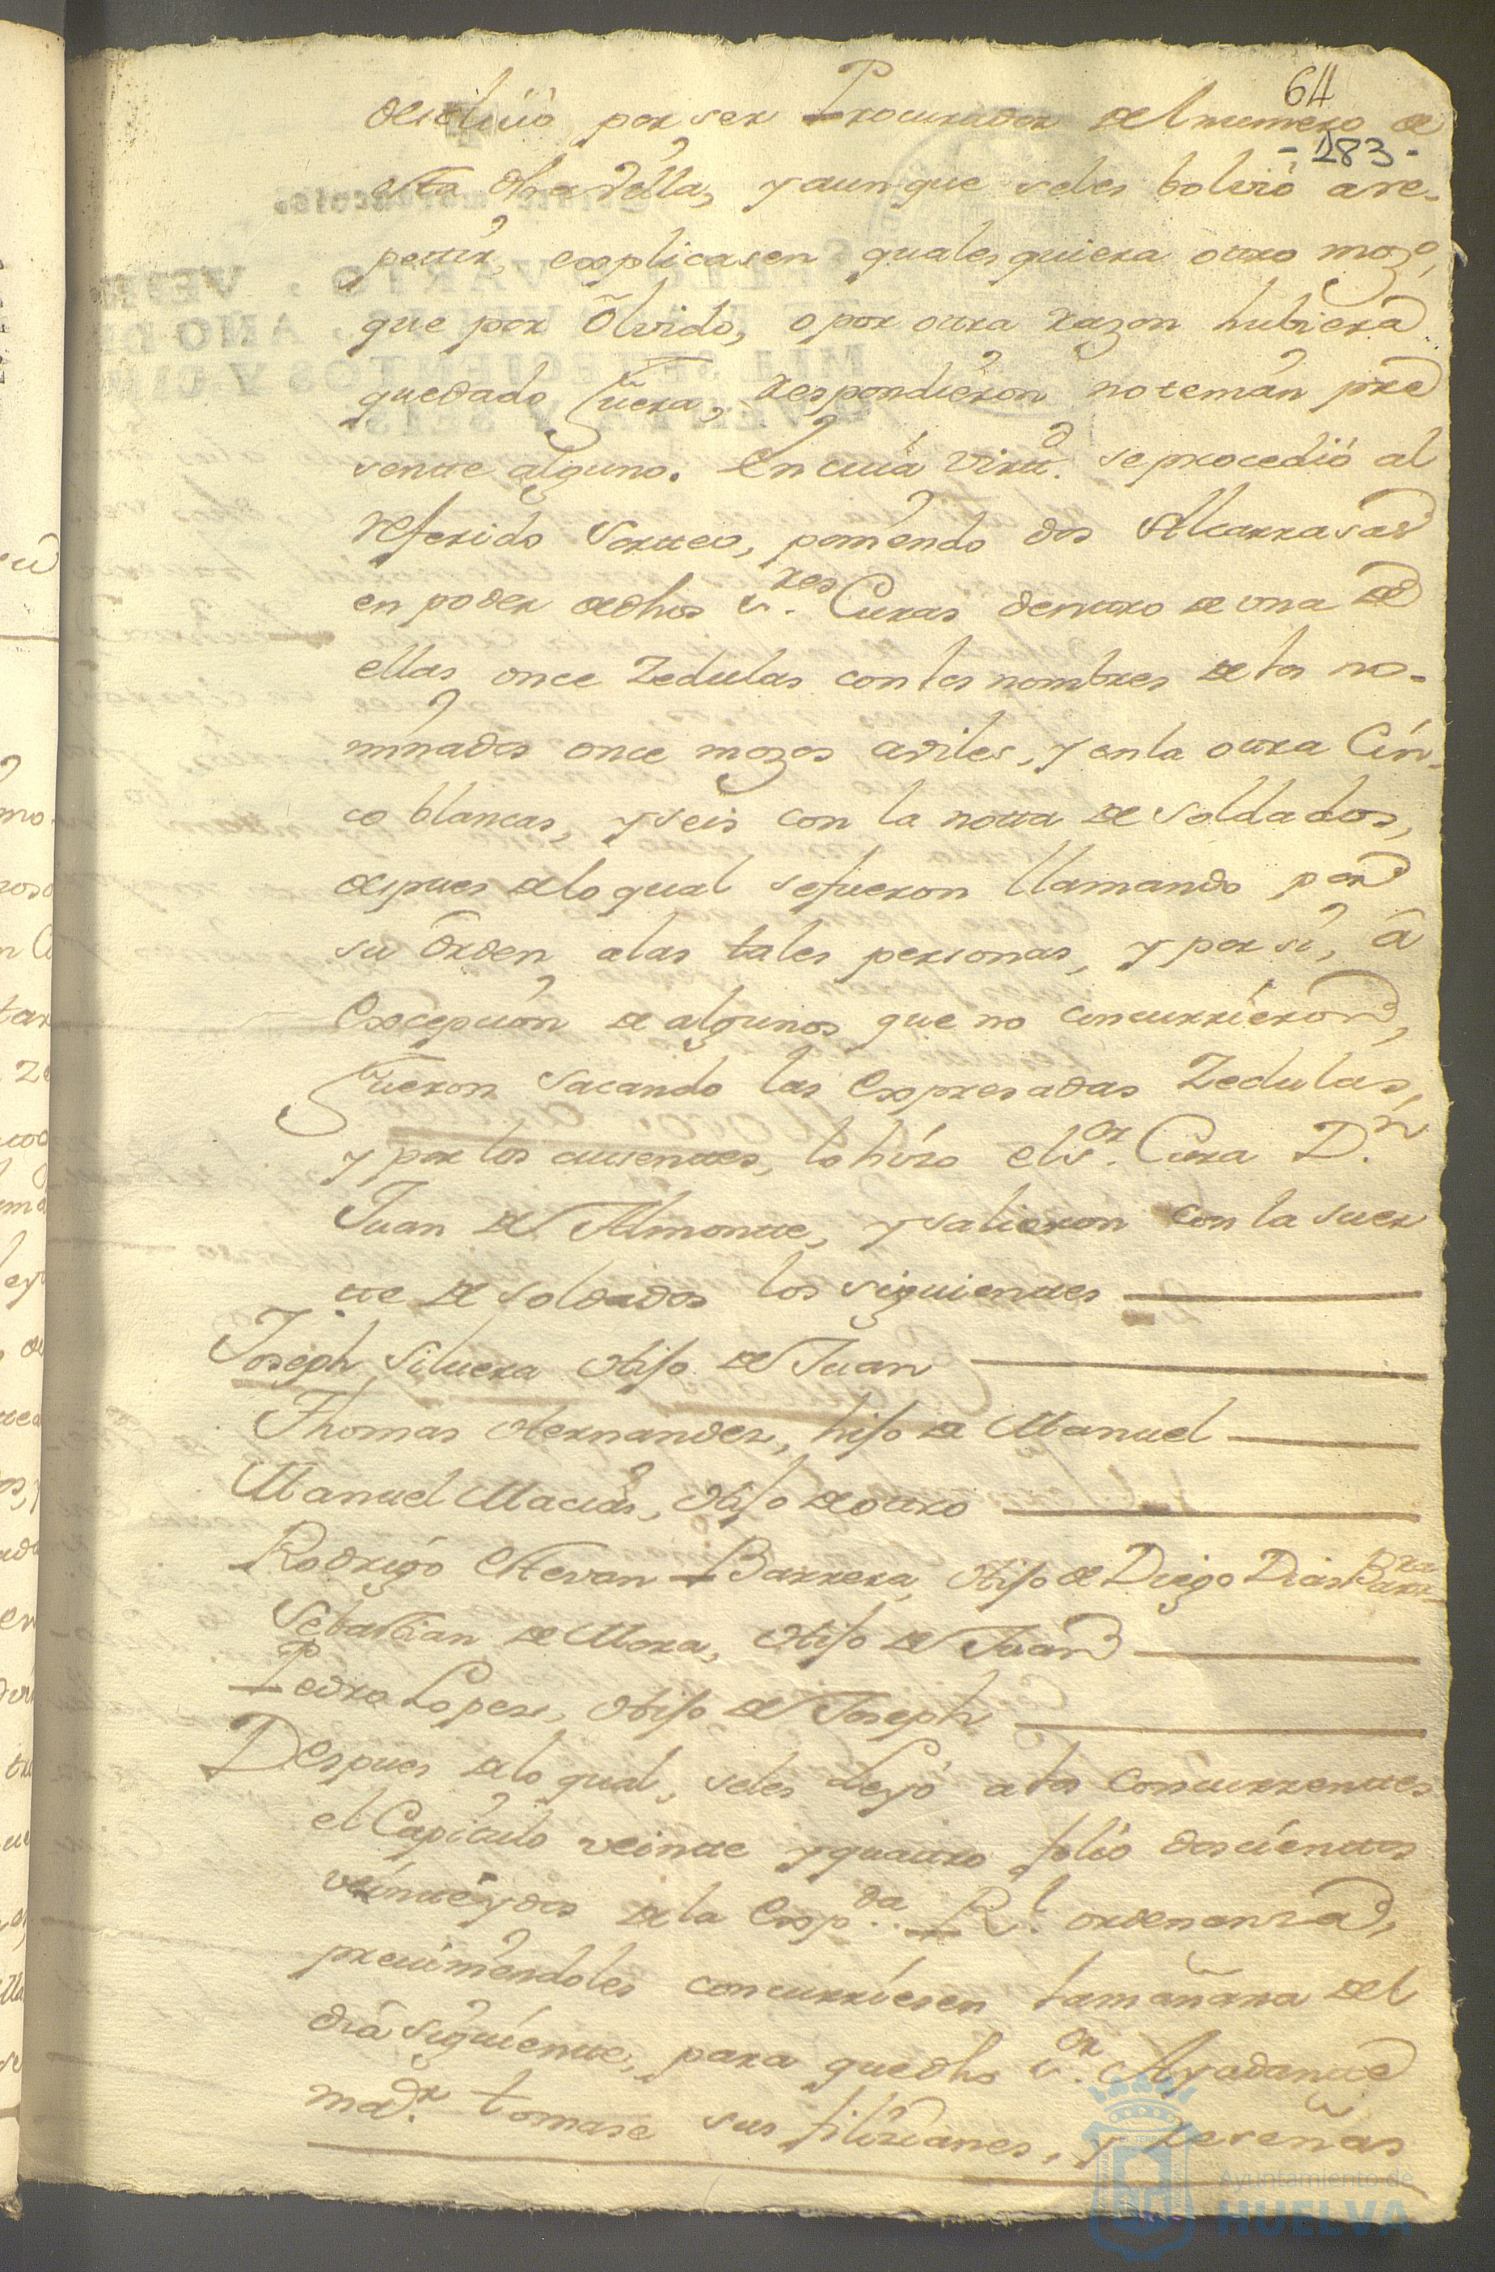 64
descluió por ser Procurador del numero de
- 283 -
esta dha Villa, y aunque seles bolvió a re-
pettir, explicasen quales quiera otro mozo,
que por Olvido, o por otra razon hubiera
quedado fuera, respondieron no tenián pre
sentte alguno. En cuia virtt.d se procedió al
referido Sortteo, poniendo dos Alcarrasas
en poder de dhos s.res Curas dentro de una de
ellas once Zedulas con los nombres de los no-
minados once mozos aviles, y en la otra Cin-
co blancas, y seis con la notta de soldados,
despues de lo qual se fueron llamando por
su Orden a las tales personas, y por sí, á
Excepción de algunos que no concurrieron,
fueron sacando las Expresadas Zedulas,
y por los ausenttes, lo hizo el s.or Cura D.n
Juan de Almontte, y salieron con la suer
tte de soldados los siguienttes
Joseph Siluera Hijo de Juan
Thomas Hernandes, hijo de Manuel
Manuel Macias, Hijo de ottro
Rodrigo Estevan Barrera, Hijo de Diego Dias Barr.ra
Sebastian de Mora, Hijo de Juan
Pedro Lopes, Hijo de Joseph
Despues de lo qual, seles Leyó a los Concurrenttes
el Capitulo veintte y quattro folio doscienttos
veintte y dos de la Exp.da R.l ordenanza,
previniendoles concurriesen la mañana del
dia siguientte, para que dho s.or Ayudantte
ma.or tomase sus filiziones, y Zereñas
Ayuntamiento de
HUELVA